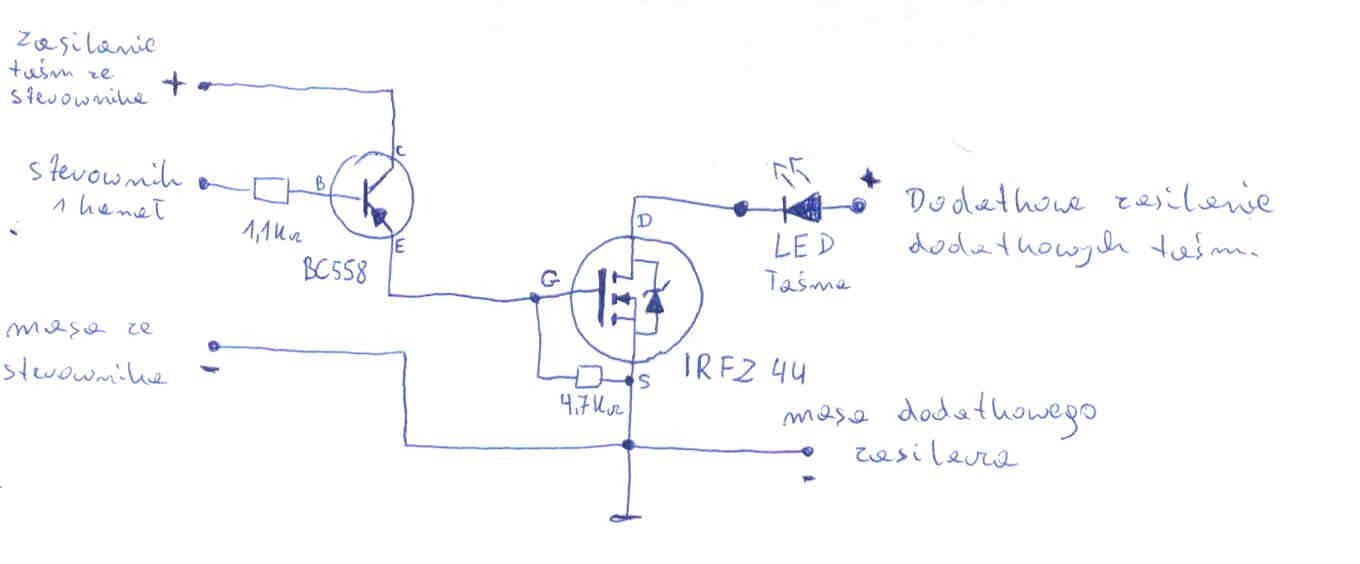 Zasilanie
taśm ze
sterownika +
C
sterownik
1 kanał
B
1,1KΩ
E
BC558
masa ze
sterownika
-
G
D
S
4,7KΩ
IRFZ 44
LED
Taśma
+
Dodatkowe zasilanie
dodatkowych taśm.
masa dodatkowego
zasilacza
-